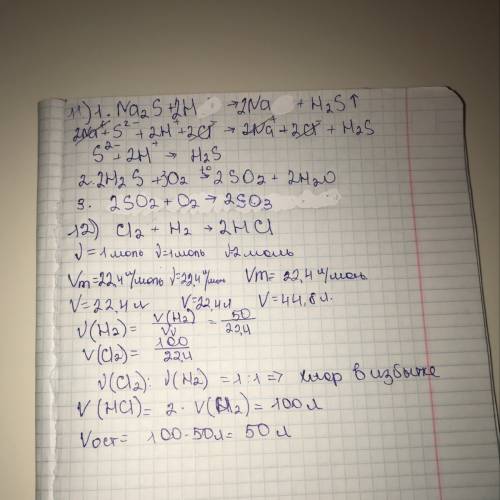 11) 1. Na₂S + 2H → 2Na + H₂S↑
2Na⁺ + S²⁻ + 2H⁺ + 2Cl⁻ → 2Na⁺ + 2Cl⁻ + H₂S
S²⁻ + 2H⁺ → H₂S
2. 2H₂S + 3O₂ →t° 2SO₂ + 2H₂O
3. 2SO₂ + O₂ → 2SO₃
12) Cl₂ + H₂ → 2HCl
ν = 1 моль ν = 1 моль ν = 2 моль
Vm = 22,4 л/моль V = 22,4 л/моль Vm = 22,4 л/моль
V = 22,4 л V = 22,4 л V = 44,8 л.
ν(H₂) = V(H₂)/Vν = 50/22,4
ν(Cl₂) = 100/22,4
ν(Cl₂) : ν(H₂) = 1:1 => хлор в избытке
V(HCl) = 2 · V(H₂) = 100 л
Vост = 100 - 50 л = 50 л